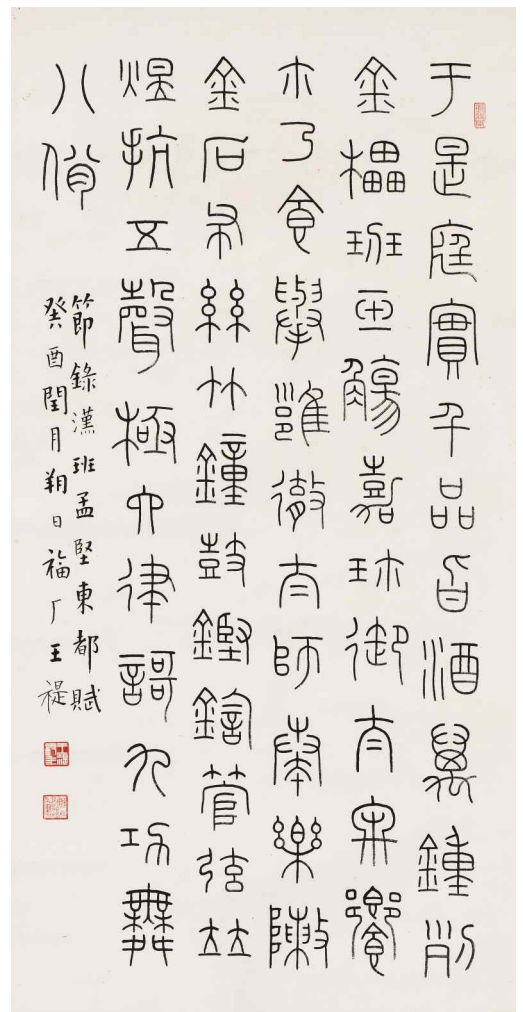 于是庭實千品旨酒萬鍾列
金罍班玉觴嘉珍御太牢饗
尒乃食舉雝徹太師奏樂陳
金石布絲竹鐘鼓鏗鍧管弦竝
煜抗五聲極六律謌九功舞
八佾
節錄漢班孟堅東都賦
癸酉閏月朔日福厂王禔